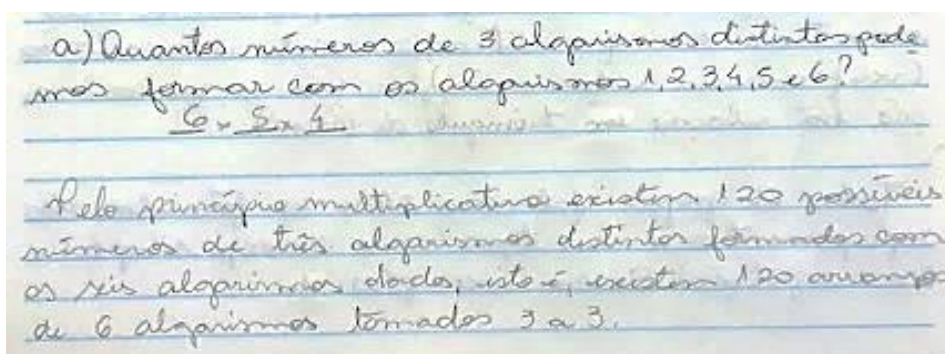 a) Quantos números de 3 algarismos distintos pode
mos formar com os algarismos 1, 2, 3, 4, 5 e 6?
6 x 5 x 4
Pelo princípio multiplicativo existem 120 possíveis
números de três algarismos distintos formados com
os seis algarismos dados, isto é, existem 120 arranjos
de 6 algarismos tomados 3 a 3.